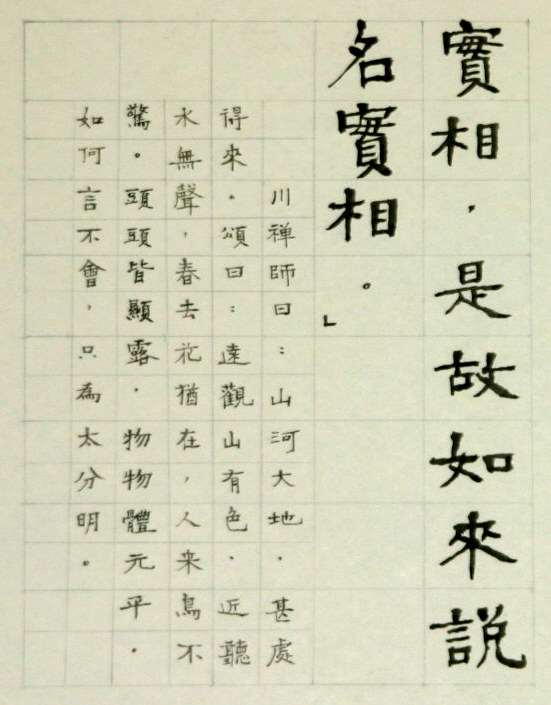 實相，是故如來說
名實相。」
川禅師曰：山河大地．甚處
得來．頌曰：遠觀山有色．近聽
水無聲，春去花猶在，人来鳥不
驚。頭頭皆顯露．物物體元平．
如何言不會，只為太分明。